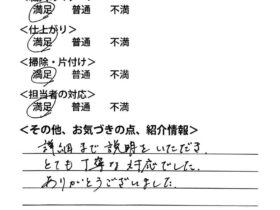 満足 普通 不満
<仕上がり>
満足 普通 不満
<掃除・片付け>
満足 普通 不満
<担当者の対応>
満足 普通 不満
<その他、お気づきの点、紹介情報>
詳細まで説明をいただき、
とても丁寧な対応でした。
ありがとうございました。